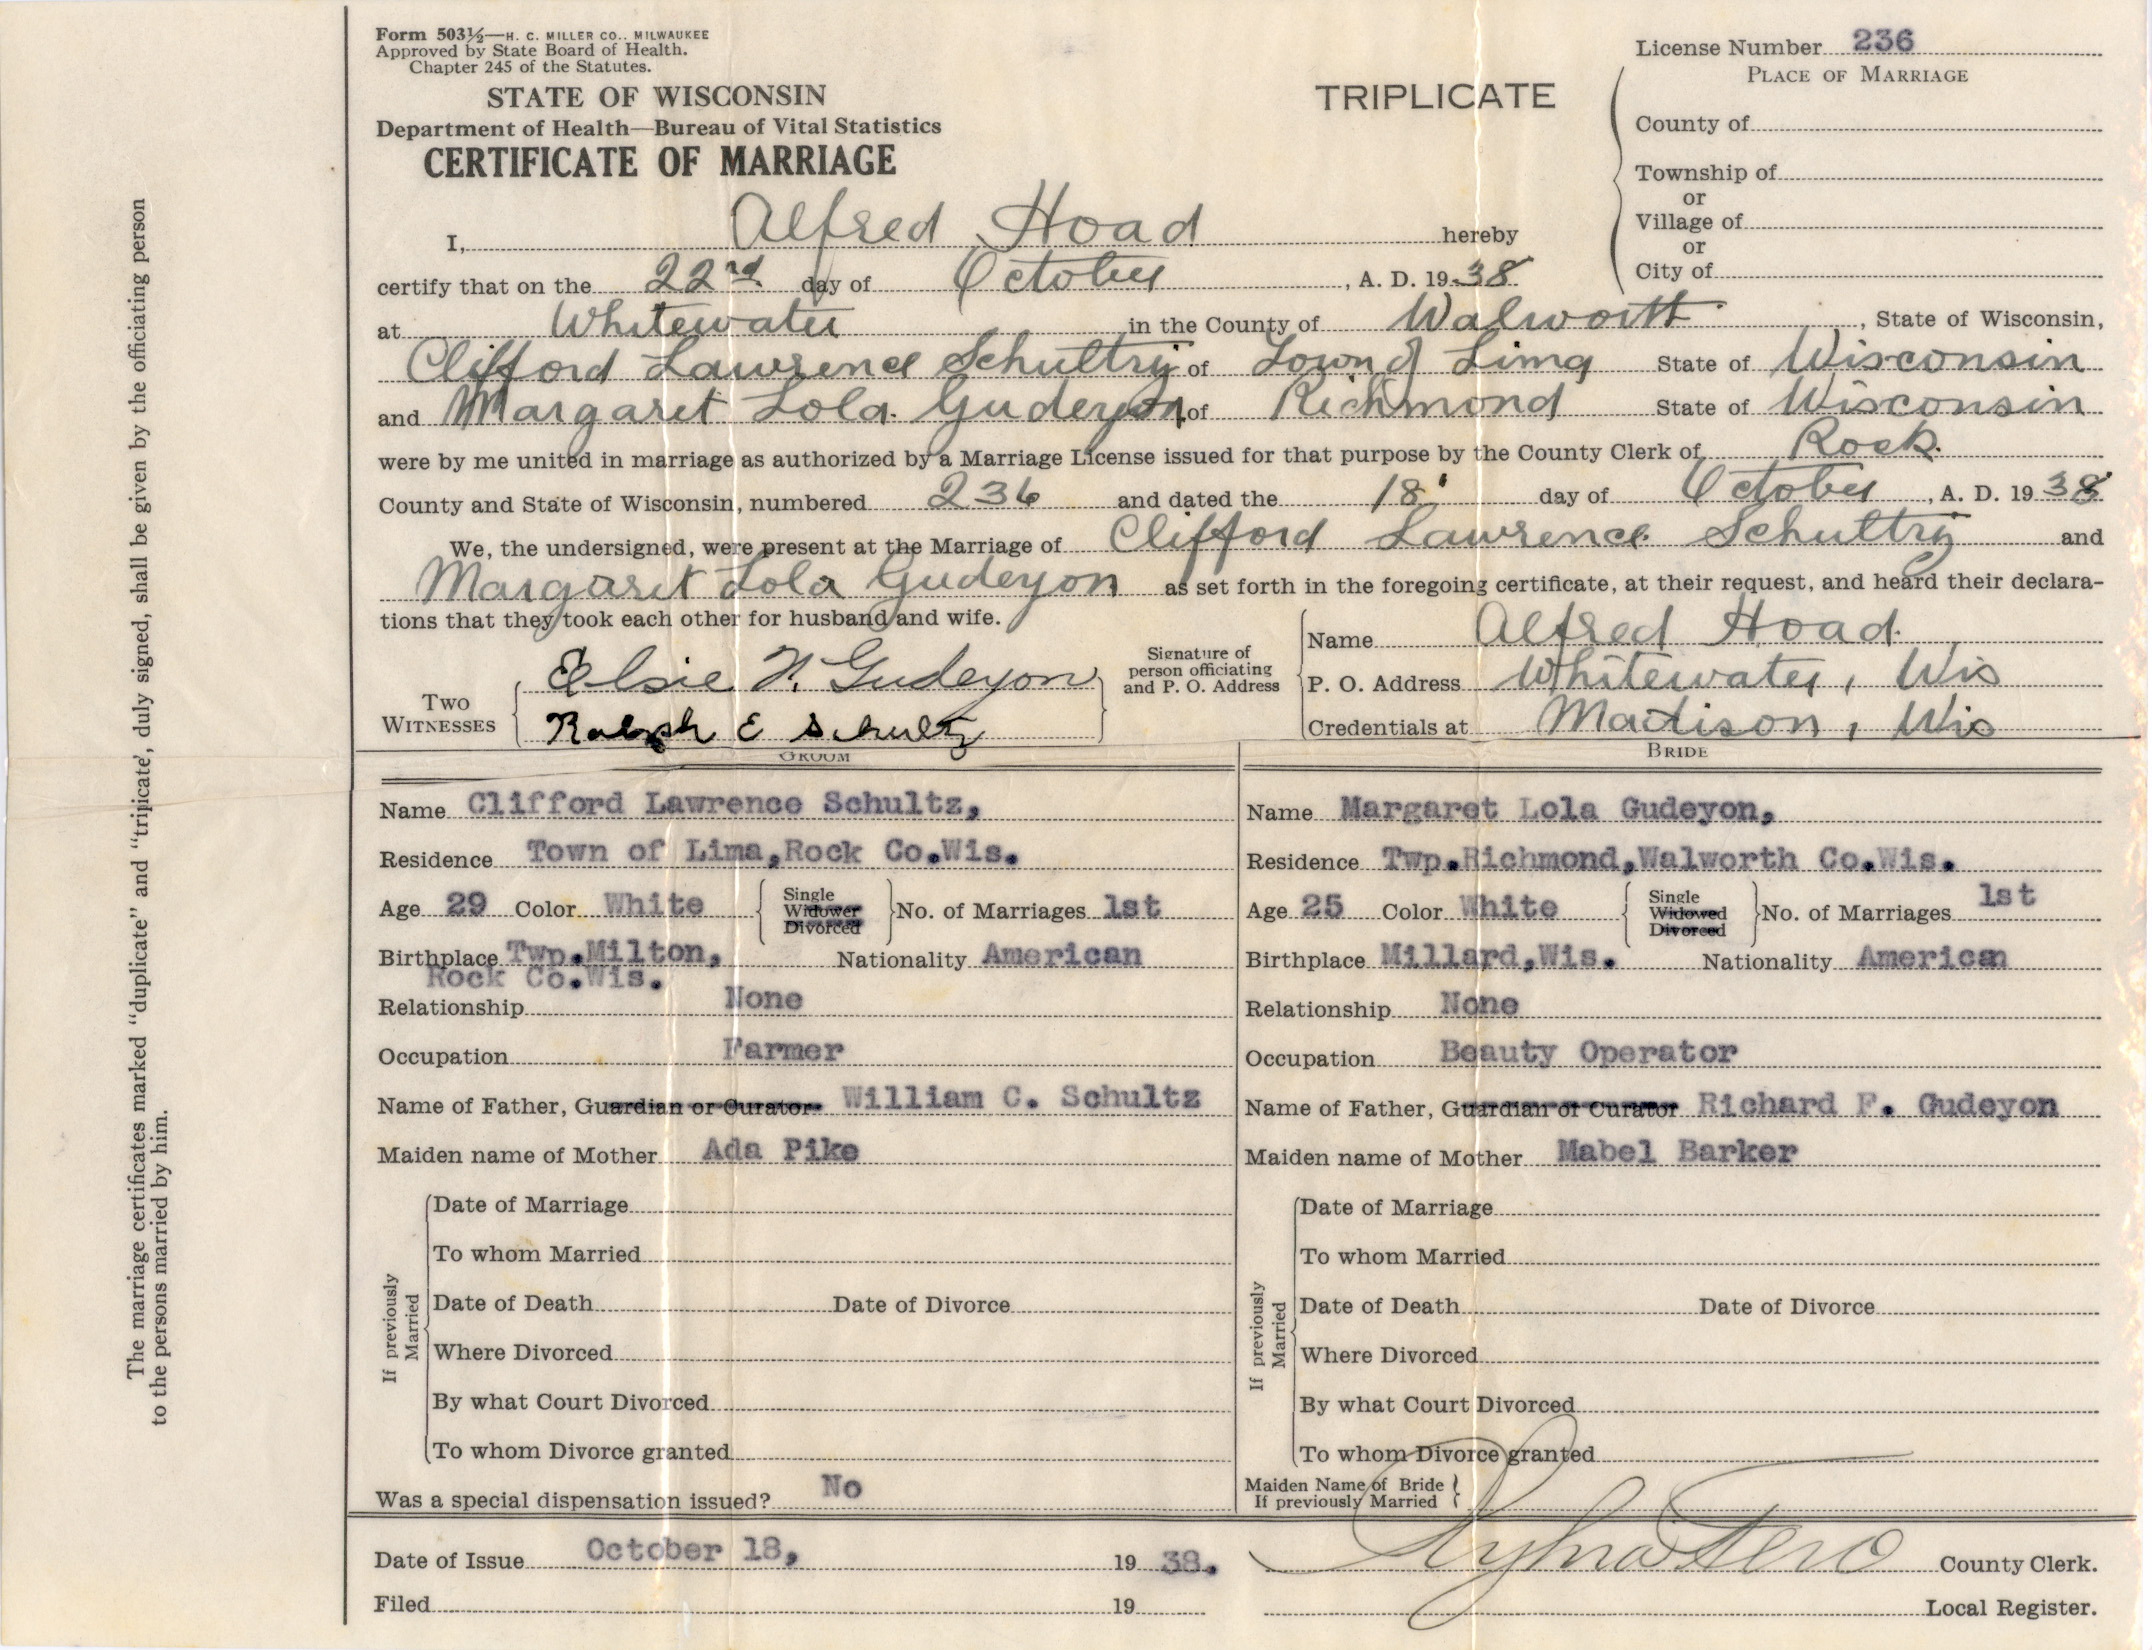 Form 503½—H. C. MILLER CO., MILWAUKEE
Approved by State Board of Health.
Chapter 245 of the Statutes.
STATE OF WISCONSIN
Department of Health—Bureau of Vital Statistics
CERTIFICATE OF MARRIAGE
TRIPLICATE
License Number 236
PLACE OF MARRIAGE
County of
Township of
or
Village of
or
City of
I, Alfred Hoad hereby
certify that on the 22nd day of October, A. D. 1938
at Whitewater in the County of Walworth, State of Wisconsin,
Clifford Lawrence Schultz of Town of Lima State of Wisconsin
and Margaret Lola Gudeyon of Richmond State of Wisconsin
were by me united in marriage as authorized by a Marriage License issued for that purpose by the County Clerk of Rock
County and State of Wisconsin, numbered 236 and dated the 18 day of October, A. D. 1938
We, the undersigned, were present at the Marriage of Clifford Lawrence Schultz and
Margaret Lola Gudeyon as set forth in the foregoing certificate, at their request, and heard their declara-
tions that they took each other for husband and wife.
TWO WITNESSES
Elsie N. Gudeyon
Ralph E Schultz
Signature of
person officiating
and P. O. Address
Name Alfred Hoad
P. O. Address Whitewater, Wis
Credentials at Madison, Wis
GROOM
Name Clifford Lawrence Schultz,
Residence Town of Lima,Rock Co.Wis.
Age 29 Color White Single Widower Divorced No. of Marriages 1st
Birthplace Twp.Milton, Nationality American
Rock Co.Wis.
Relationship None
Occupation Farmer
Name of Father, Guardian or Curator William C. Schultz
Maiden name of Mother Ada Pike
If previously Married
Date of Marriage
To whom Married
Date of Death Date of Divorce
Where Divorced
By what Court Divorced
To whom Divorce granted
Was a special dispensation issued? No
BRIDE
Name Margaret Lola Gudeyon,
Residence Twp.Richmond,Walworth Co.Wis.
Age 25 Color White Single Widowed Divorced No. of Marriages 1st
Birthplace Millard,Wis. Nationality American
Relationship None
Occupation Beauty Operator
Name of Father, Guardian or Curator Richard F. Gudeyon
Maiden name of Mother Mabel Barker
If previously Married
Date of Marriage
To whom Married
Date of Death Date of Divorce
Where Divorced
By what Court Divorced
To whom Divorce granted
Maiden Name of Bride
If previously Married
Date of Issue October 18, 19 38.
County Clerk.
Filed 19
Local Register.
The marriage certificates marked "duplicate" and "triplicate", duly signed, shall be given by the officiating person
to the persons married by him.